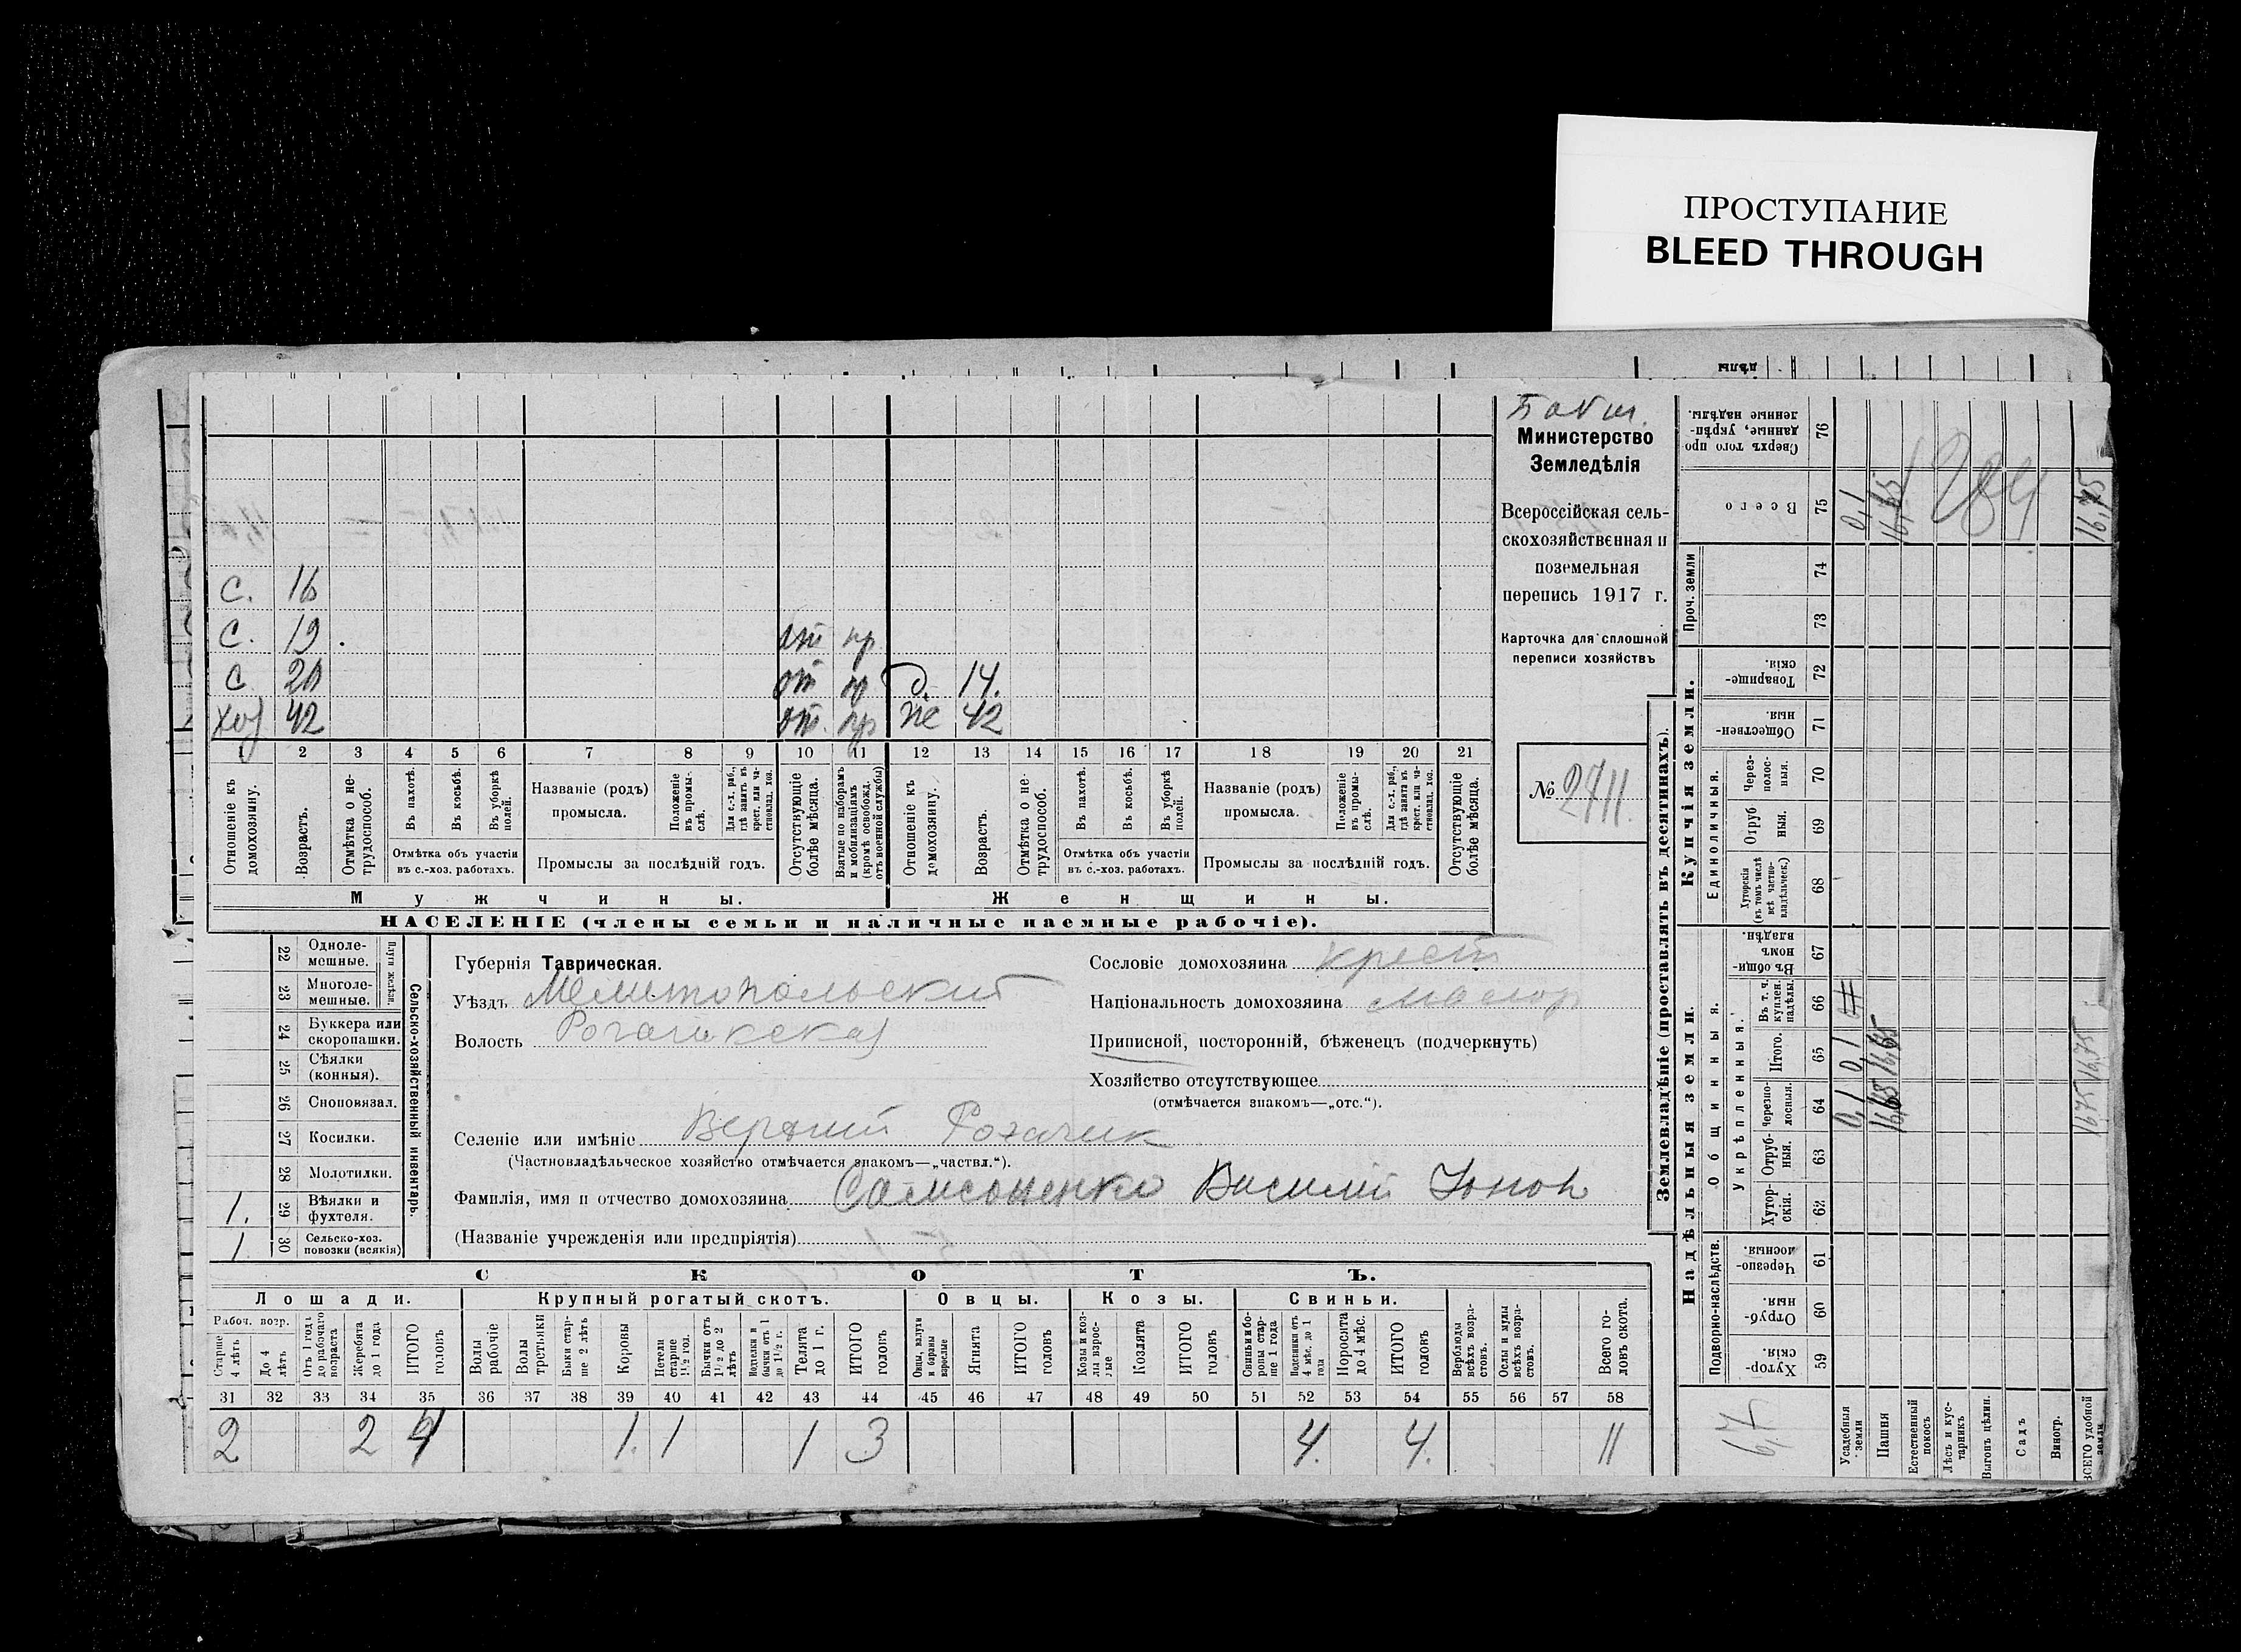 ПРОСТУПАНИЕ
BLEED THROUGH
Министерство
Земледѣлія
Всероссійская сель-
скохозяйственная и
поземельная
перепись 1917 г.
Карточка для сплошной
переписи хозяйствъ
№ 2711.
С. 16
С. 19 . от пр
С 20 от пр д. 14.
хоз 42 от. пр же 42
1 2 3 4 5 6 7 8 9 10 11 12 13 14 15 16 17 18 19 20 21
Отношеніе къ домохозяину.
Возрастъ.
Отмѣтка о не-трудоспособ.
Въ пахотѣ.
Въ косьбѣ.
Въ уборкѣ полей.
Отмѣтка объ участіи
въ с.-хоз. работахъ.
Названіе (родъ)
промысла.
Положеніе въ промы-слѣ.
Для с.-х. раб., гдѣ занятъ въ крест. или ча-стновлад. хоз.
Промыслы за послѣдній годъ.
Отсутствующіе болѣе мѣсяца.
Взятые по наборамъ и мобилизаціямъ (кромѣ освобожд. отъ военной службы)
Отношеніе къ домохозяину.
Возрастъ.
Отмѣтка о не-трудоспособ.
Въ пахотѣ.
Въ косьбѣ.
Въ уборкѣ полей.
Отмѣтка объ участіи
въ с.-хоз. работахъ.
Названіе (родъ)
промысла.
Положеніе въ промы-слѣ.
Для с.-х. раб., гдѣ занята въ крест. или ча-стновлад. хоз.
Промыслы за послѣдній годъ.
Отсутствующіе болѣе мѣсяца.
Мужчины. Женщины.
НАСЕЛЕНІЕ (члены семьи и наличные наемные рабочіе).
22 Одноле-мешные.
23 Многоле-мешные.
Плуги желѣзн.
24 Буккера или скоропашки.
25 Сѣялки (конныя).
26 Сноповязал.
27 Косилки.
28 Молотилки.
1. 29 Вѣялки и фухтеля.
1 30 Сельско-хоз. повозки (всякія)
Сельско-хозяйственный инвентарь.
Губернія Таврическая.
Уѣздъ Мелитопольский
Волость Рогачикская
Сословіе домохозяина крест
Національность домохозяина малор
Приписной, посторонній, бѣженец (подчеркнуть)
Хозяйство отсутствующее
(отмѣчается знакомъ—„отс.“).
Селеніе или имѣніе Верхний Рогачик
(Частновладѣльческое хозяйство отмѣчается знакомъ—„частвл.“).
Фамилія, имя и отчество домохозяина Самсоненко Василий Ионов
(Названіе учрежденія или предпріятія)
СКОТЪ.
Лошади. Крупный рогатый скотъ. Овцы. Козы. Свиньи.
Рабоч. возр.
Старше 4 лѣтъ
До 4 лѣтъ
Отъ 1 года до рабочаго возраста
Жеребята до 1 года
ИТОГО головъ
Волы рабочіе
Волы третьяки
Быки стар-ше 2 лѣтъ
Коровы
Нетели старше 1½ год.
Бычки отъ 1½ до 2 лѣтъ
Подтелки и бычки отъ 1 до 1½ г.
Телята до 1 г.
ИТОГО головъ
Овцы, валухи и бараны взрослые
Ягнята
ИТОГО головъ
Козы и коз-лы взрос-лые
Козлята
ИТОГО головъ
Свиньи и бо-ровы стар-ше 1 года
Подсвинки отъ 4 мѣс. до 1 года
Поросята до 4 мѣс.
ИТОГО головъ
Верблюды всѣхъ возра-стовъ.
Ослы и мулы всѣхъ возра-стовъ.
Всего го-ловъ скота.
31 32 33 34 35 36 37 38 39 40 41 42 43 44 45 46 47 48 49 50 51 52 53 54 55 56 57 58
2 2 4 1. 1 1 3 4. 4. 11
Землевладѣніе (проставлять въ десятинахъ).
Надѣльныя земли. Купчія земли.
Подворно-наслѣдств.
Общинныя.
Укрѣпленныя.
Единоличныя.
Проч. земли
Хутор-скія. 59
Отруб-ныя. 60
Черезпо-лосныя. 61
Хутор-скія. 62
Отруб-ныя. 63
Черезпо-лосныя. 64
Итого. 65
Въ т. ч. куплен. надѣлы. 66
Въ общи-номъ владѣн. 67
Хуторскія (въ томъ числѣ всѣ частно-владѣльческ.) 68
Отруб ныя. 69
Через-полос-ныя. 70
Обществен-ныя. 71
Товарище-скія. 72
73
74
Всего 75
Сверхъ того про данные, укрѣп-ленные надѣлы. 76
Усадебныя земли 0,1 0,1 0,1
Пашня 16,65 16,65 16,65
Естественный покосъ
Лѣсъ и кус-тарникъ
Выгонъ цѣлин.
Садъ
Виногр.
ВСЕГО удобной земли 16,75 16,75 16,75
284